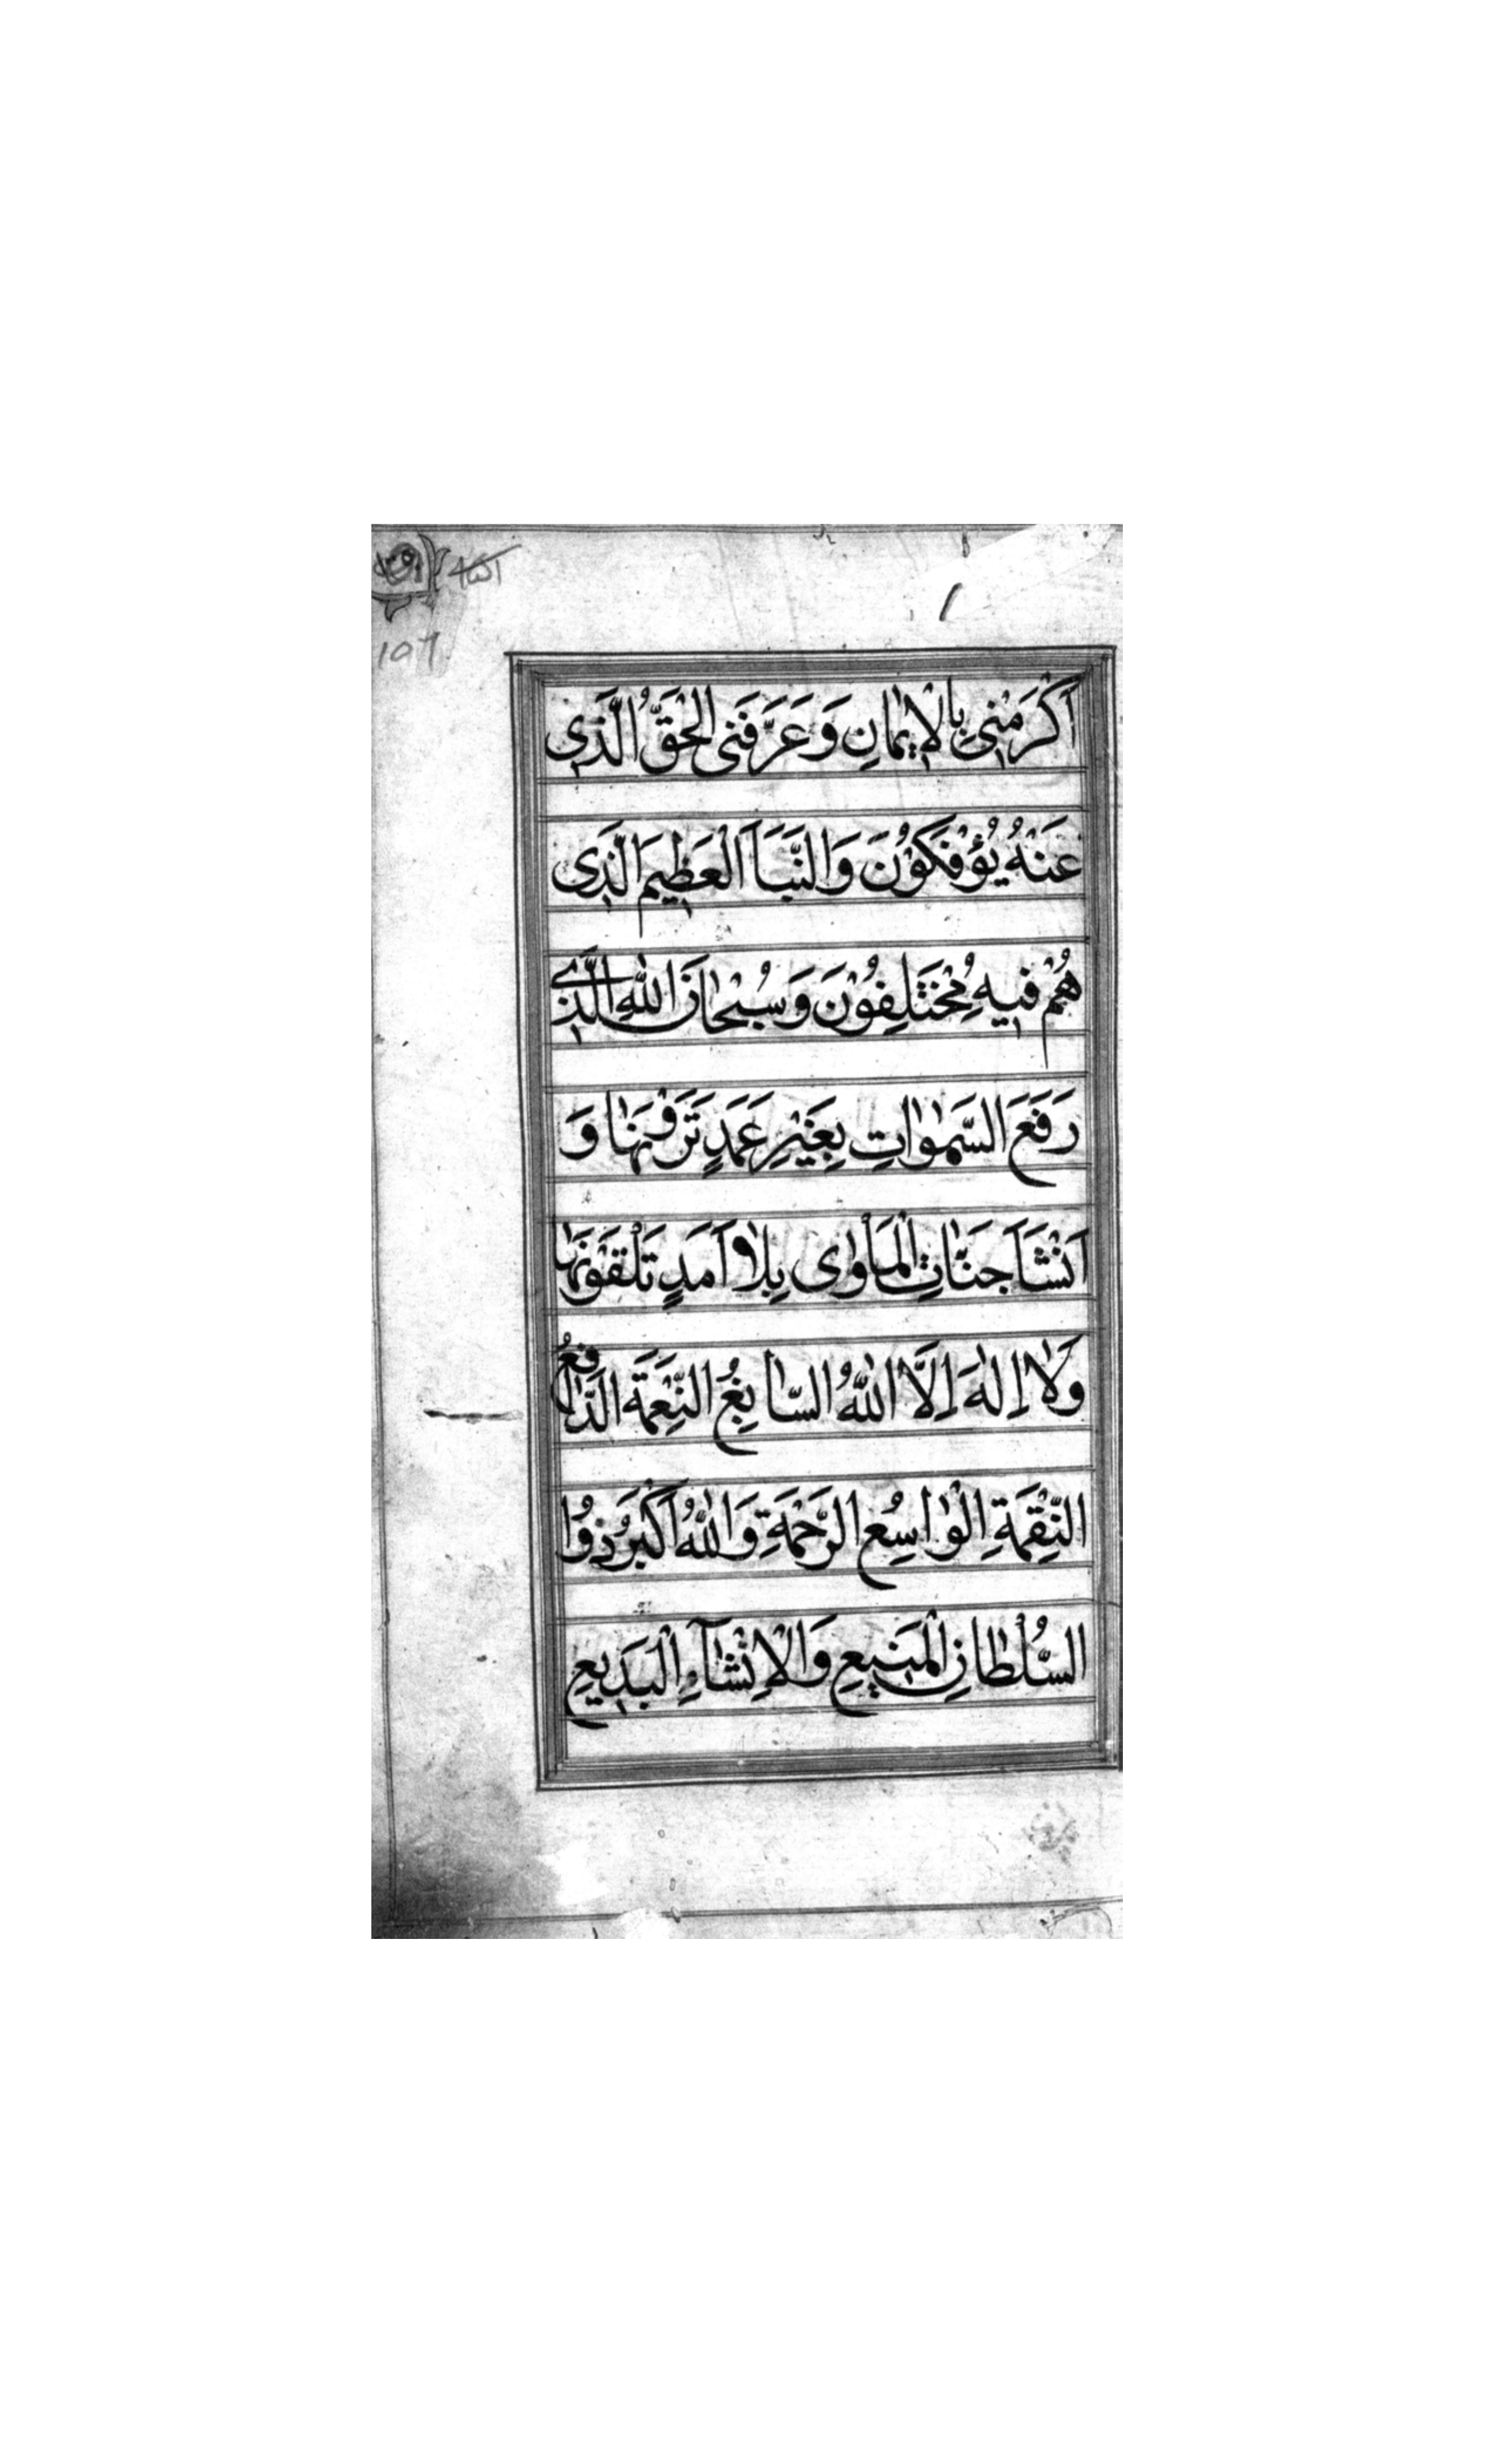 اَكْرَمَنِی بِالْاِیْمانِ وَعَرَّفَنِی الْحَقَّ الَّذِی
عَنْهُ یُؤْفَكُوْنَ وَالنَّبَاَ الْعَظِیْمَ الَّذِی
هُمْ فِیْهِ مُخْتَلِفُوْنَ وَسُبْحٰانَ اللّٰهِ الَّذِی
رَفَعَ السَّمٰوٰاتِ بِغَیْرِ عَمَدٍ تَرَوْنَهٰا وَ
اَنْشَاَ جَنّٰاتِ الْمَأْوٰی بِلٰا اَمَدٍ تَلْقَوْنَهٰا
وَلٰا اِلٰهَ اِلَّا اللّٰهُ السّٰابِغُ النِّعْمَةَ الدّٰافِعُ
النِّقْمَةِ الْوٰاسِعُ الرَّحْمَةِ وَاللّٰهُ اَكْبَرُ ذُوا
السُّلْطٰانِ الْمَنِیْعِ وَالْاِنْشٰآءِ الْبَدِیْعِ